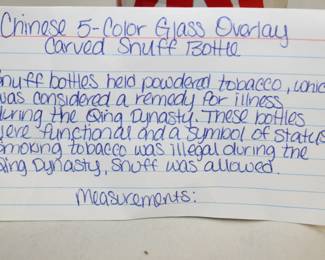 Chinese 5-Color Glass Overlay
Carved Snuff Bottle
Snuff bottles held powdered tobacco, which
was considered a remedy for illness
during the Qing Dynasty. These bottles
were functional and a symbol of status.
Smoking tobacco was illegal during the
Qing Dynasty, snuff was allowed.
Measurements: